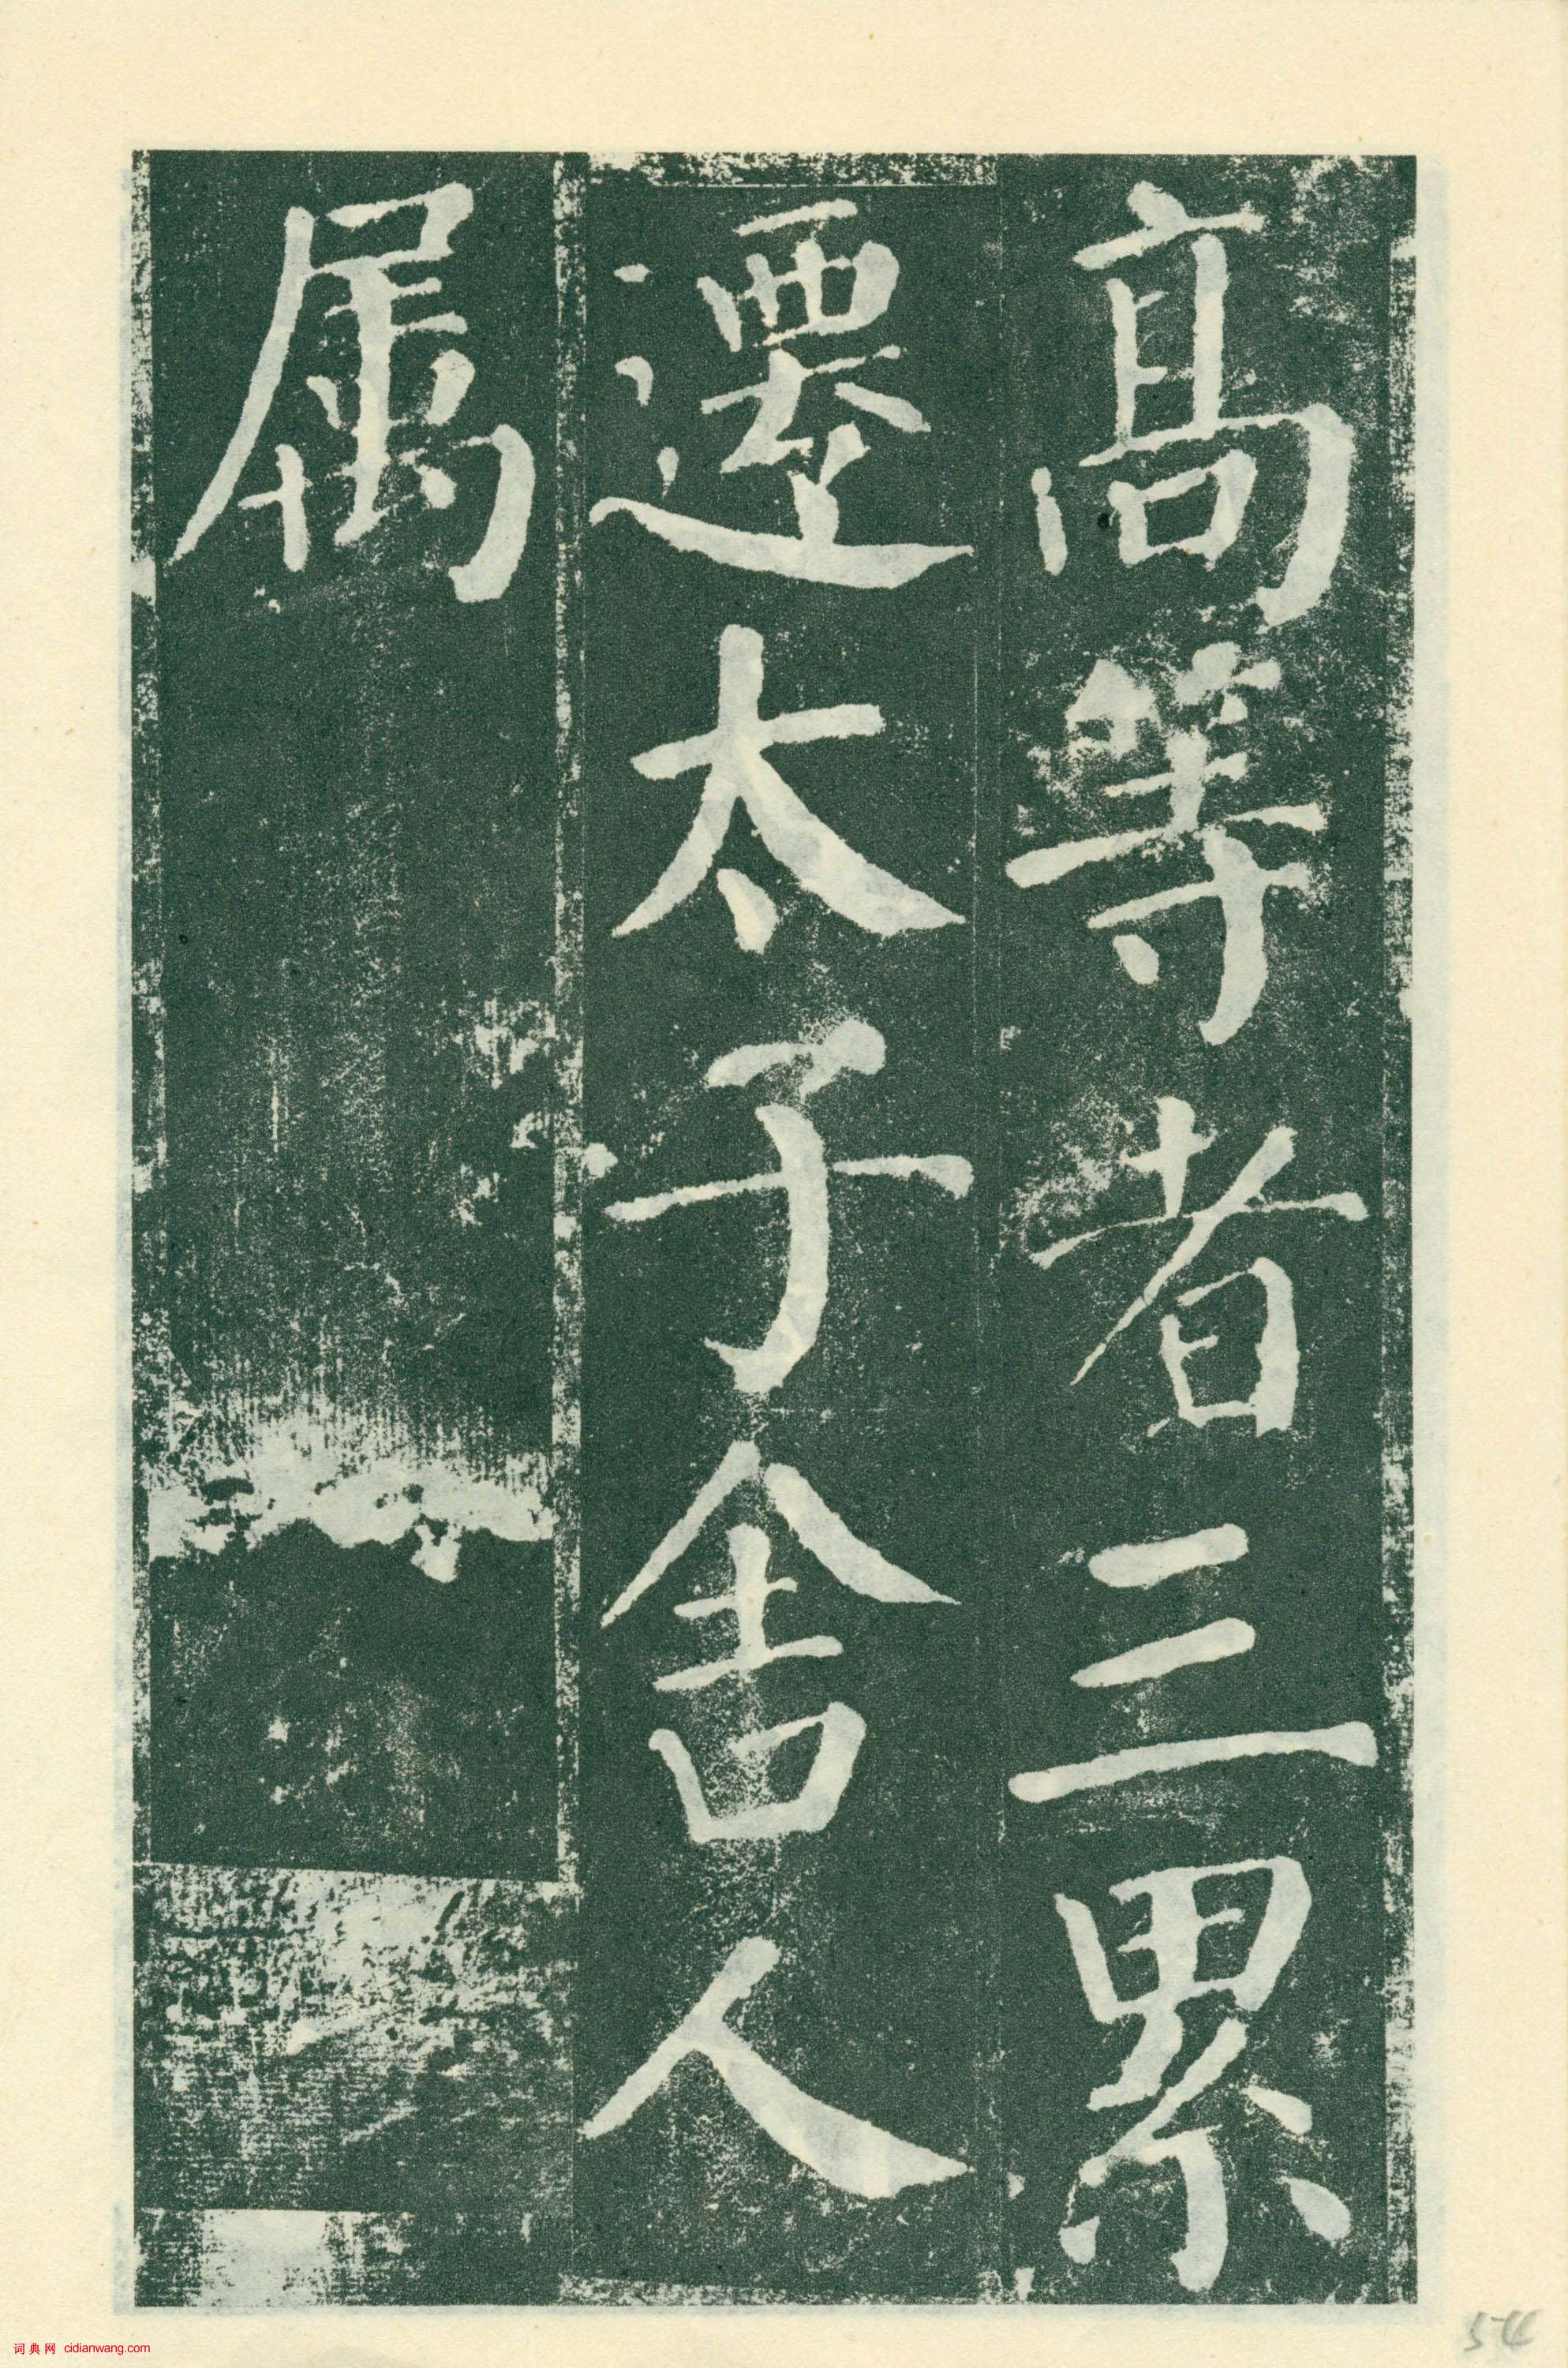 高等者三累
遷太子舍人
属
词典网 cidianwang.com
54